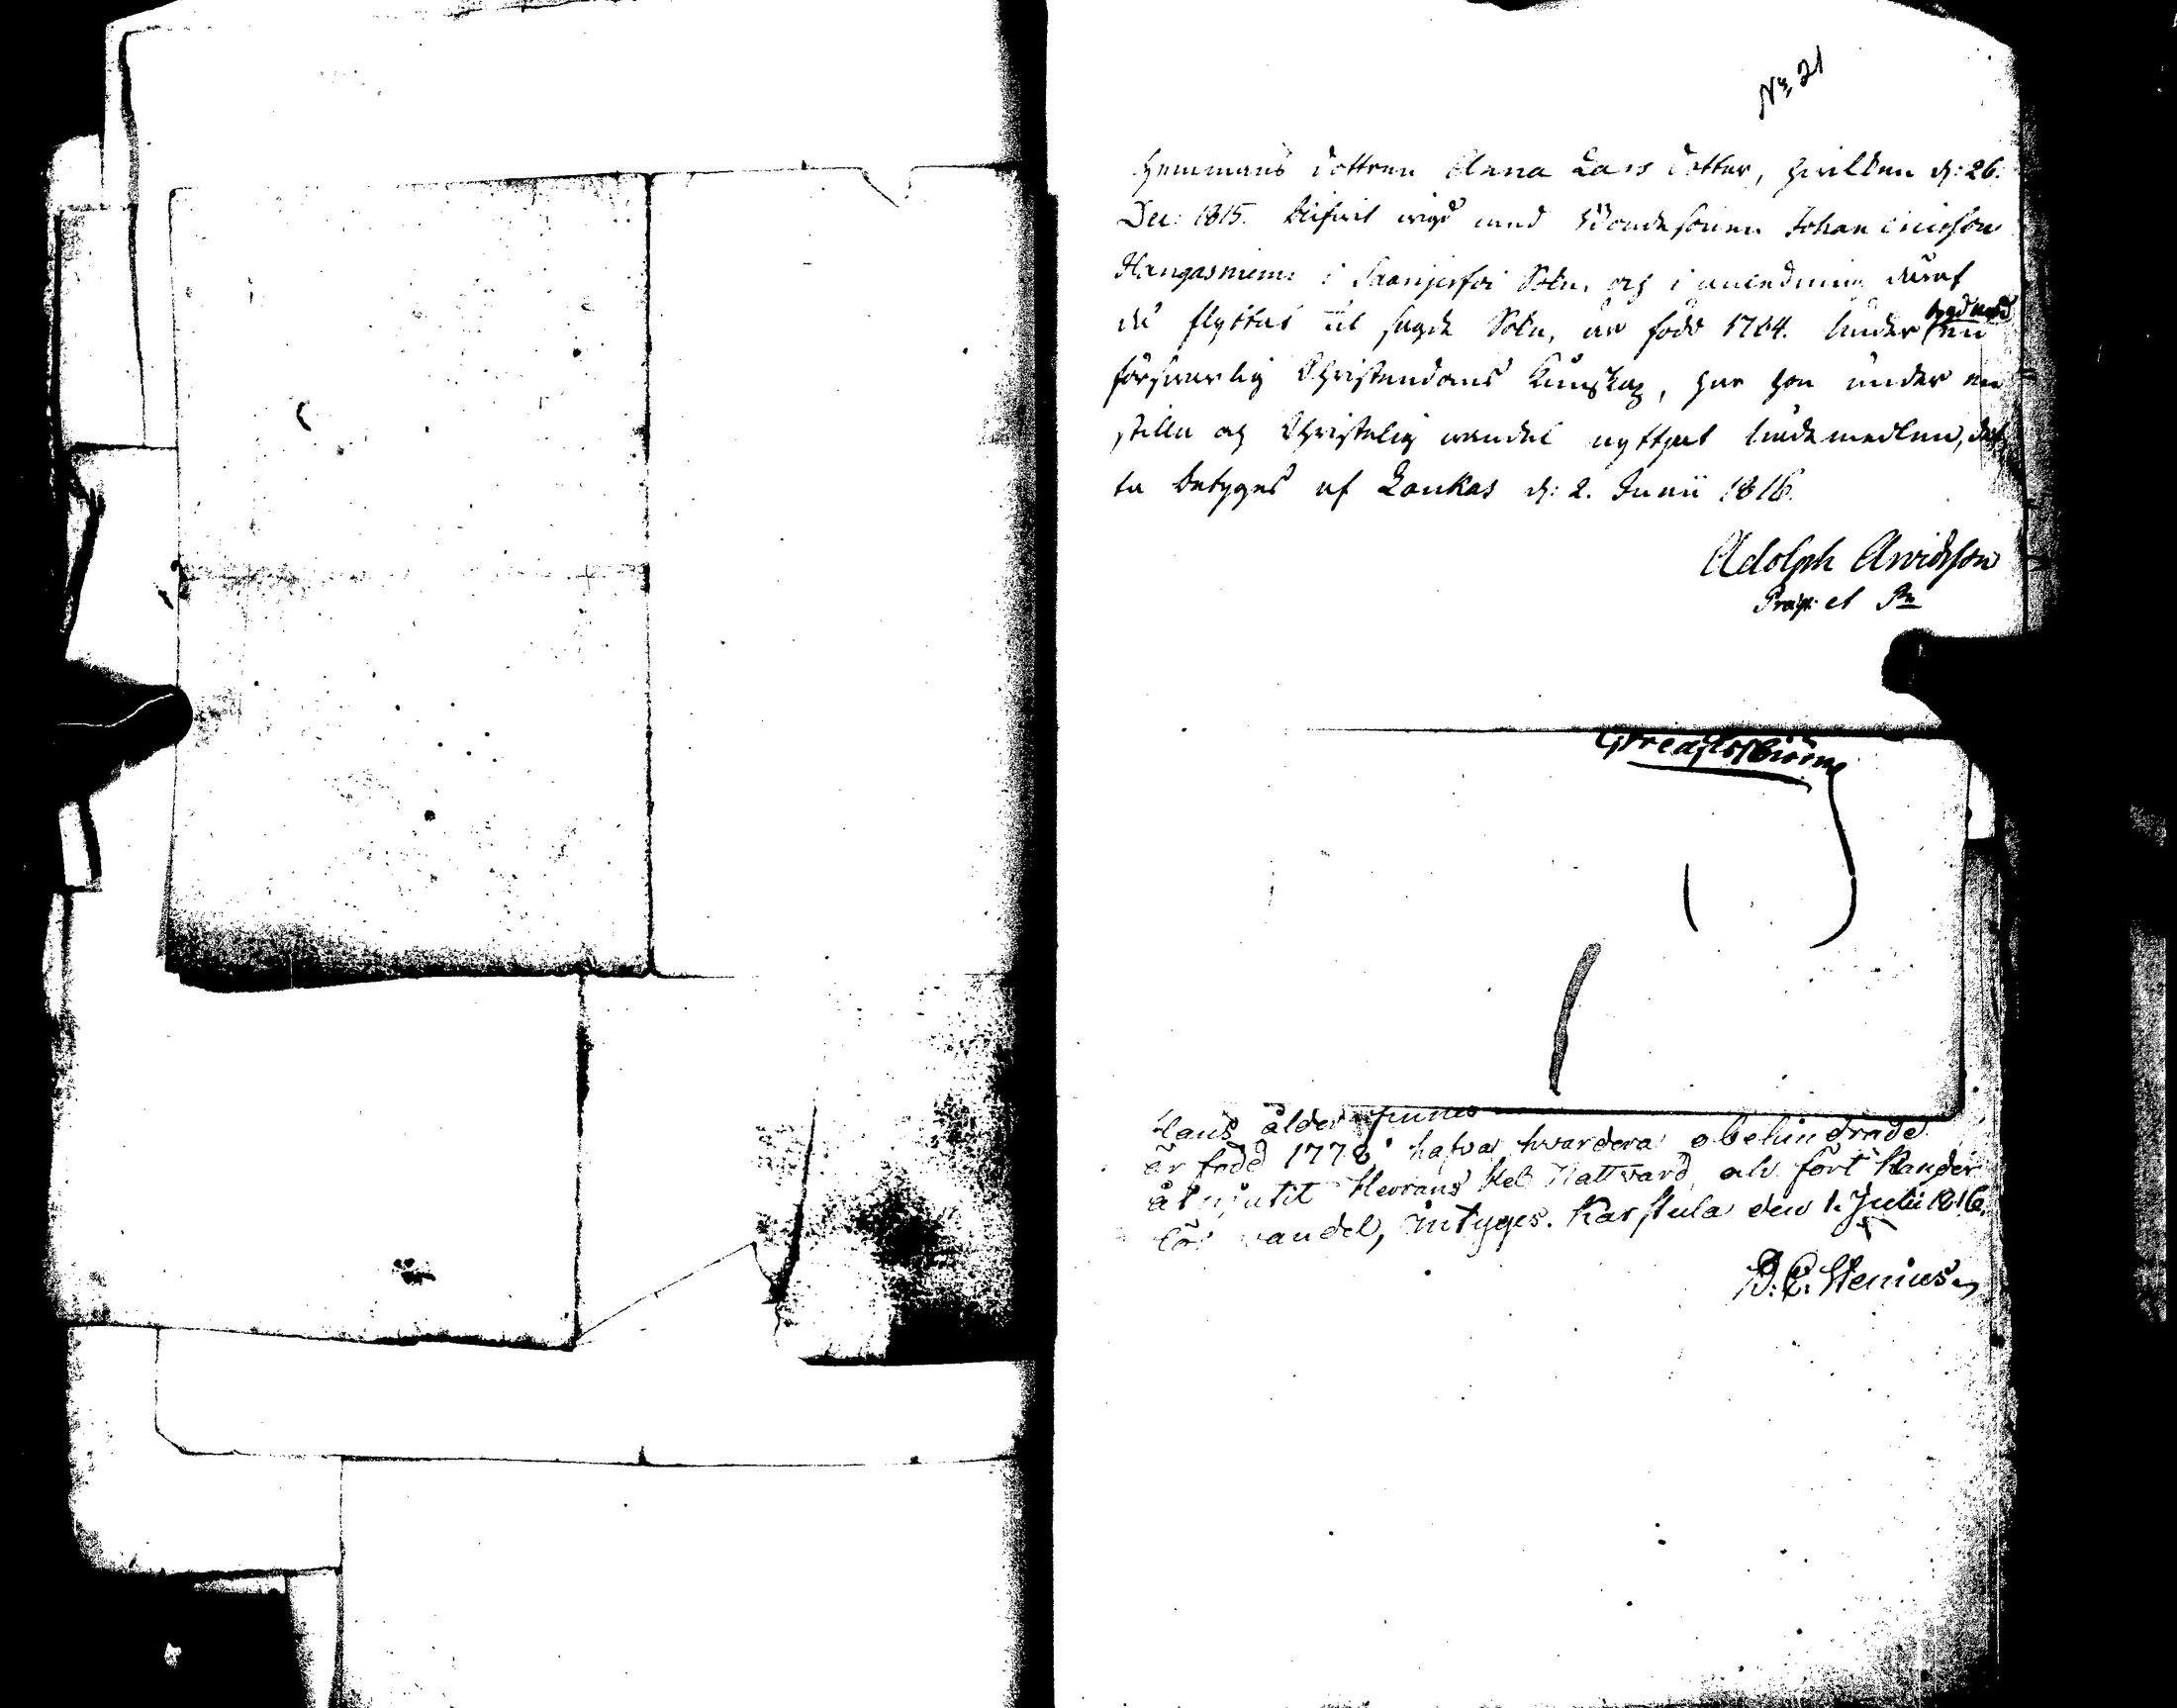 No 21
Hemmans dottren Anna Lars dotter, hvilken d: 26.
Dec: 1815. blifvit vigd med Bondesonen Johan Ericsson
Hangasniemi i Saarijerfvi Sokn, och i anledning däraf
nu flyttar til sagde Sokn, är född 1784. Under
försvarlig Christendoms kunskap, har hon under en
stilla och Christelig vandel nyttjat
ta betyges af Laukas d: 2. Junii 1816.
Adolph Arvidsson
Præp: et
Hans ålder finnes
är född 1778 hafva hvardera obehindrade
åtnjutit Herrans Hel Nattvard och fört
vandel, intyges. Karstula den 1. Julii 1816.
B. E. Stenius